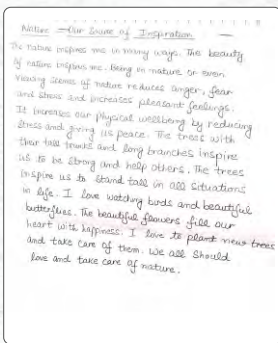 Nature – Our Source of Inspiration
The nature inspires me in many ways. The beauty
of nature inspires me. Being in nature or even
viewing scenes of nature reduces anger, fear
and stress and increases pleasant feelings.
It increases our physical wellbeing by reducing
stress and giving us peace. The trees with
their tall trunks and long branches inspire
us to be strong and help others. The trees
inspire us to stand tall in all situations
in life. I love watching birds and beautiful
butterflies. The beautiful flowers fill our
heart with happiness. I love to plant new trees
and take care of them. We all should
love and take care of nature.